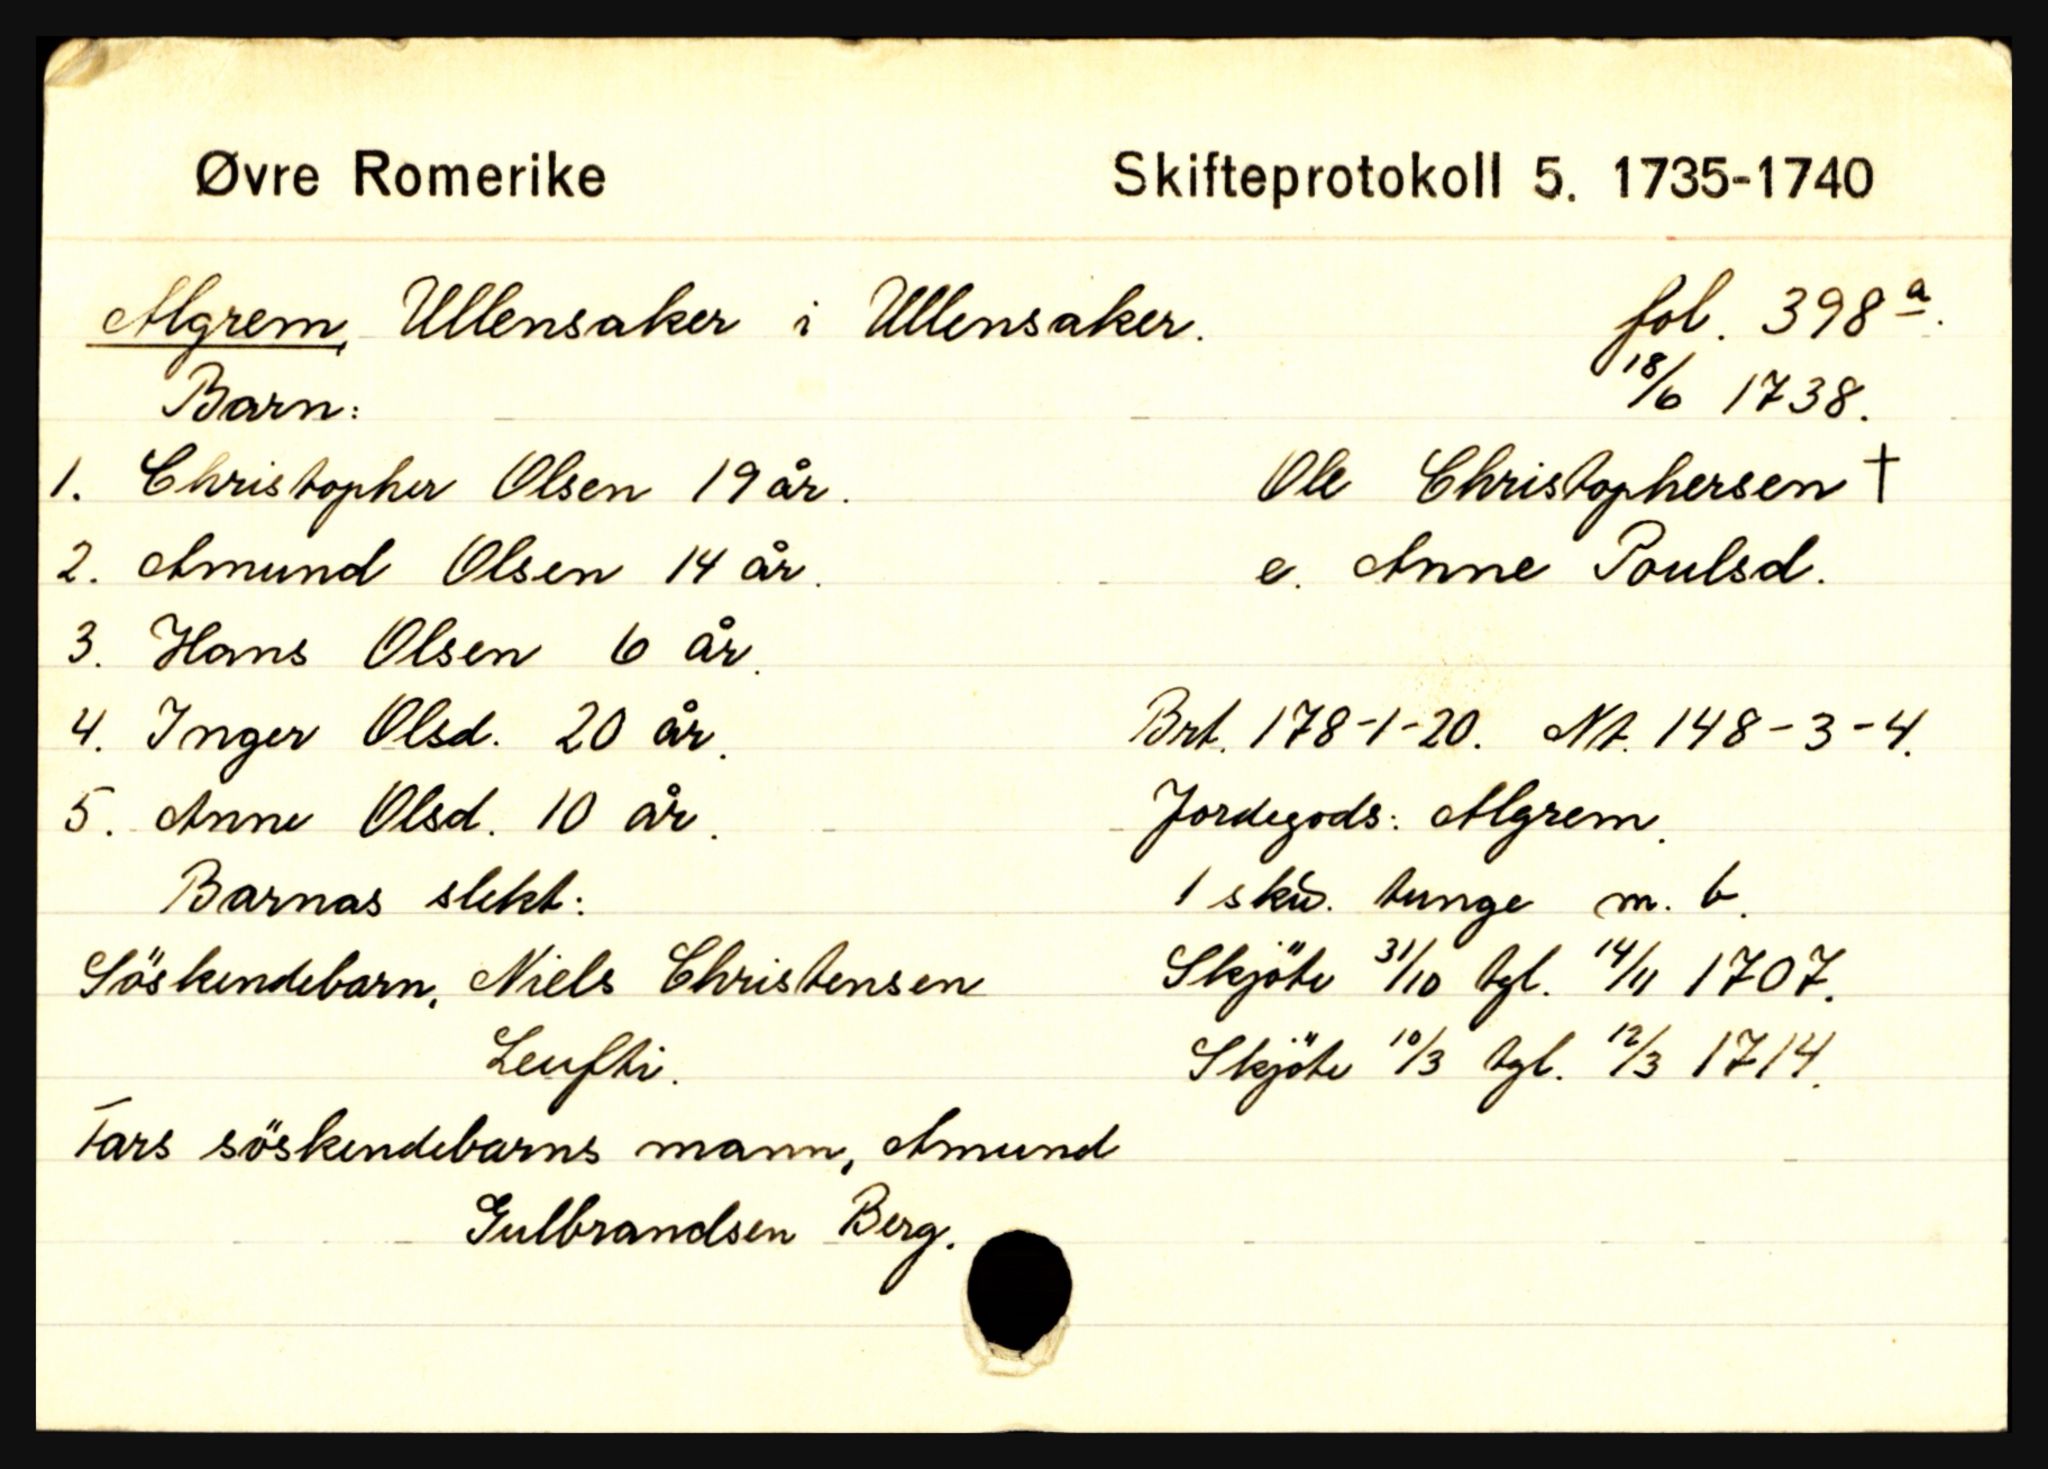 Øvre Romerike
Skifteprotokoll 5. 1735-1740
Algrem, Ullensaker i Ullensaker.
fol. 398 a.
18/6 1738.
Barn:
1. Christopher Olsen 19 år.
2. Amund Olsen 14 år.
3. Hans Olsen 6 år.
4. Inger Olsd. 20 år.
5. Anne Olsd. 10 år.
Barnas slekt:
Söskendebarn, Niels Christensen
Leufti.
Fars söskendebarns mann, Amund
Gulbrandsen Berg.
Ole Christophersen †
e. Anne Poulsd.
Brt. 178-1-20. Nt. 148-3-4.
Jordegods: Algrem.
1 skd. tunge m. b.
Skjöte 31/10 tgl. 14/11 1707.
Skjöte 10/3 tgl. 12/3 1714.